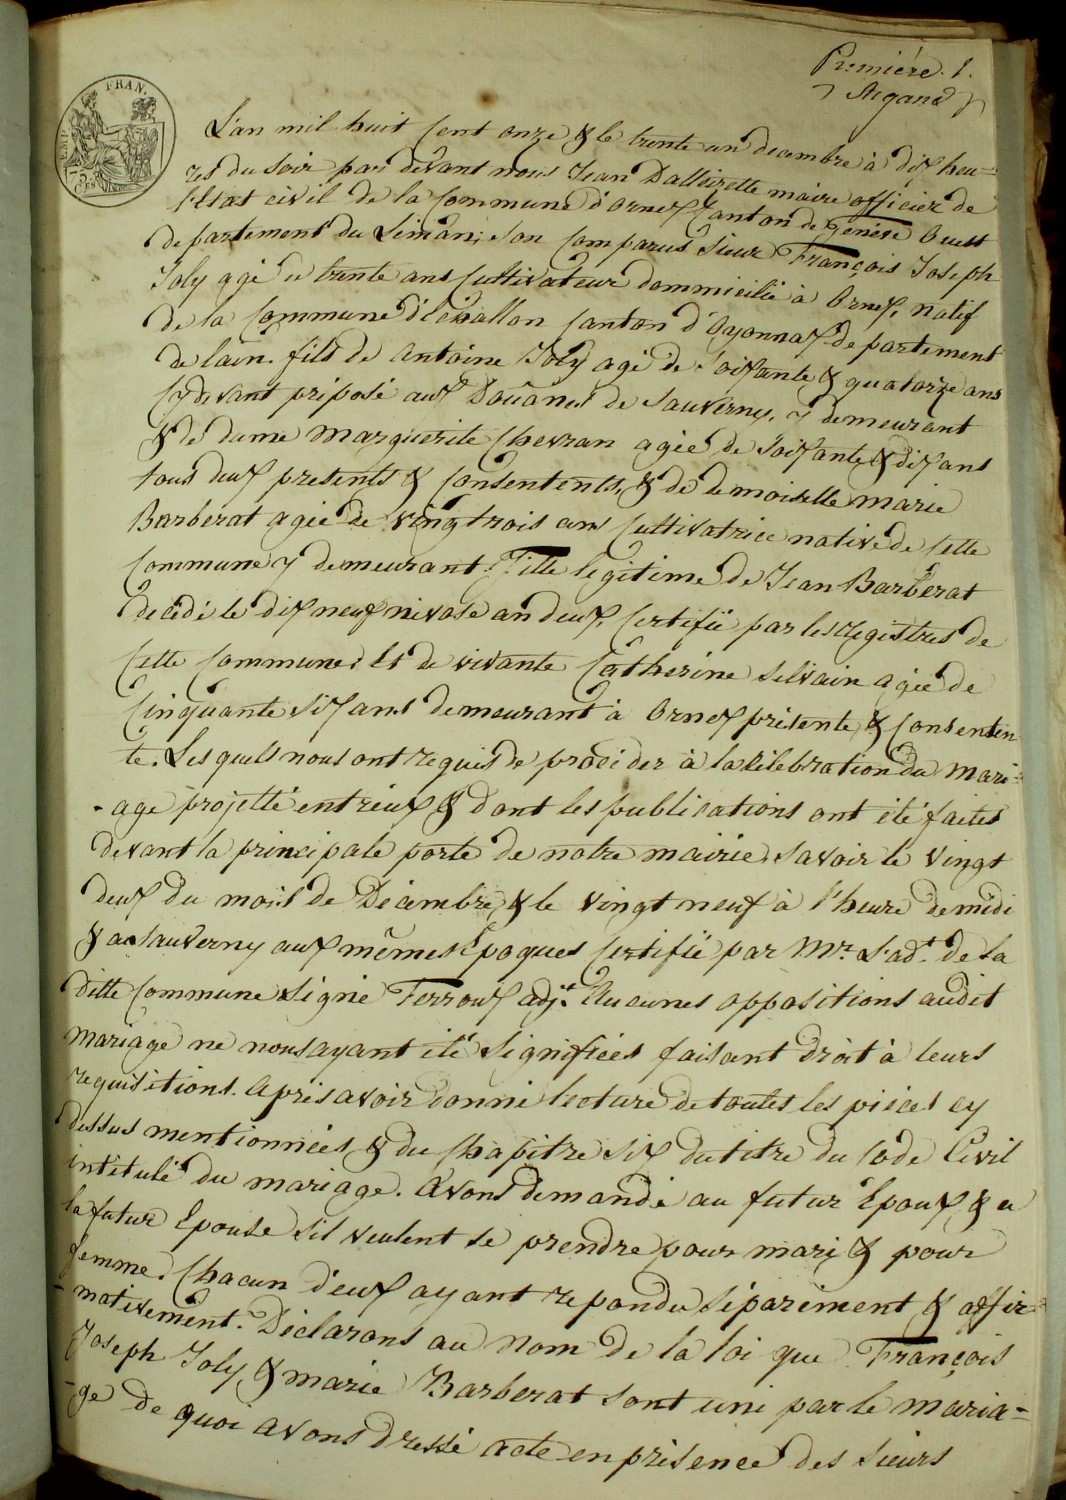 Premiére. 1.
Argand
EMP. FRAN.
75
CES
L'an mil huit cent onze & le trente un decembre à dix heu=
res du soir par devant nous Jean Dalloizette maire officier de
l'Etat civil de la Commune d'Ornex Canton de Genêve Ouest
departement du Leman; son comparus Sieur François Joseph
Joly agé de trente ans Cultivateur dommicilié à Ornex, natif
de la Commune d'Echallon Canton d'Oyonnax departement
de lain. fils de Antoine Joly agé de Soixante & quatorze ans
Cydevant préposé aux Doüanes de Sauverny, y demeurant
& de dame Marguerite Chevran agée de Soixante & dix ans
tous deux presents & Consentents, & de demoiselle marie
Barberat agée de vingtrois ans Cultivatrice native de Cette
Commune y demeurant. Fille légitime de Jean Barberat
décédé le dix neuf nivose an deux, Certifié par les régistres de
Cette Commune; Et de vivante Catherine Selvain agée de
Cinquante six ans demeurant à Ornex présente & Consenten
te. Lesquels nous ont requis de procéder à la Célébration du Mari=
-age projetté entr'eux & dont les publications ont été faites
devant la principale porte de notre mairie, Savoir le vingt
deux du mois de Décembre, & le vingt neuf à l'heure de midi
& a Sauverny aux mêmes Epoques Certifié par Mr. L'adt. de la
ditte Commune Signé Ferroux adjt. Aucunes oppositions audit
Mariage ne nous ayant été Signifiées faisant droit à leurs
requisitions. Après avoir donné lecture de toutes les piéces cy
dessus mentionnées & du Chapitre Six du titre du Code Civil
intitulé du mariage. Avons demandé au futur Epoux & a
la futur Epouse s'il veulent se prendre pour mari & pour
femme. Chacun d'eux ayant repondu Séparément & affir=
-mativement. Déclarons au nom de la loi que François
Joseph Joly, & marie Barberat sont uni par le maria=
-ge de quoi avons dressé acte en présence des Sieurs